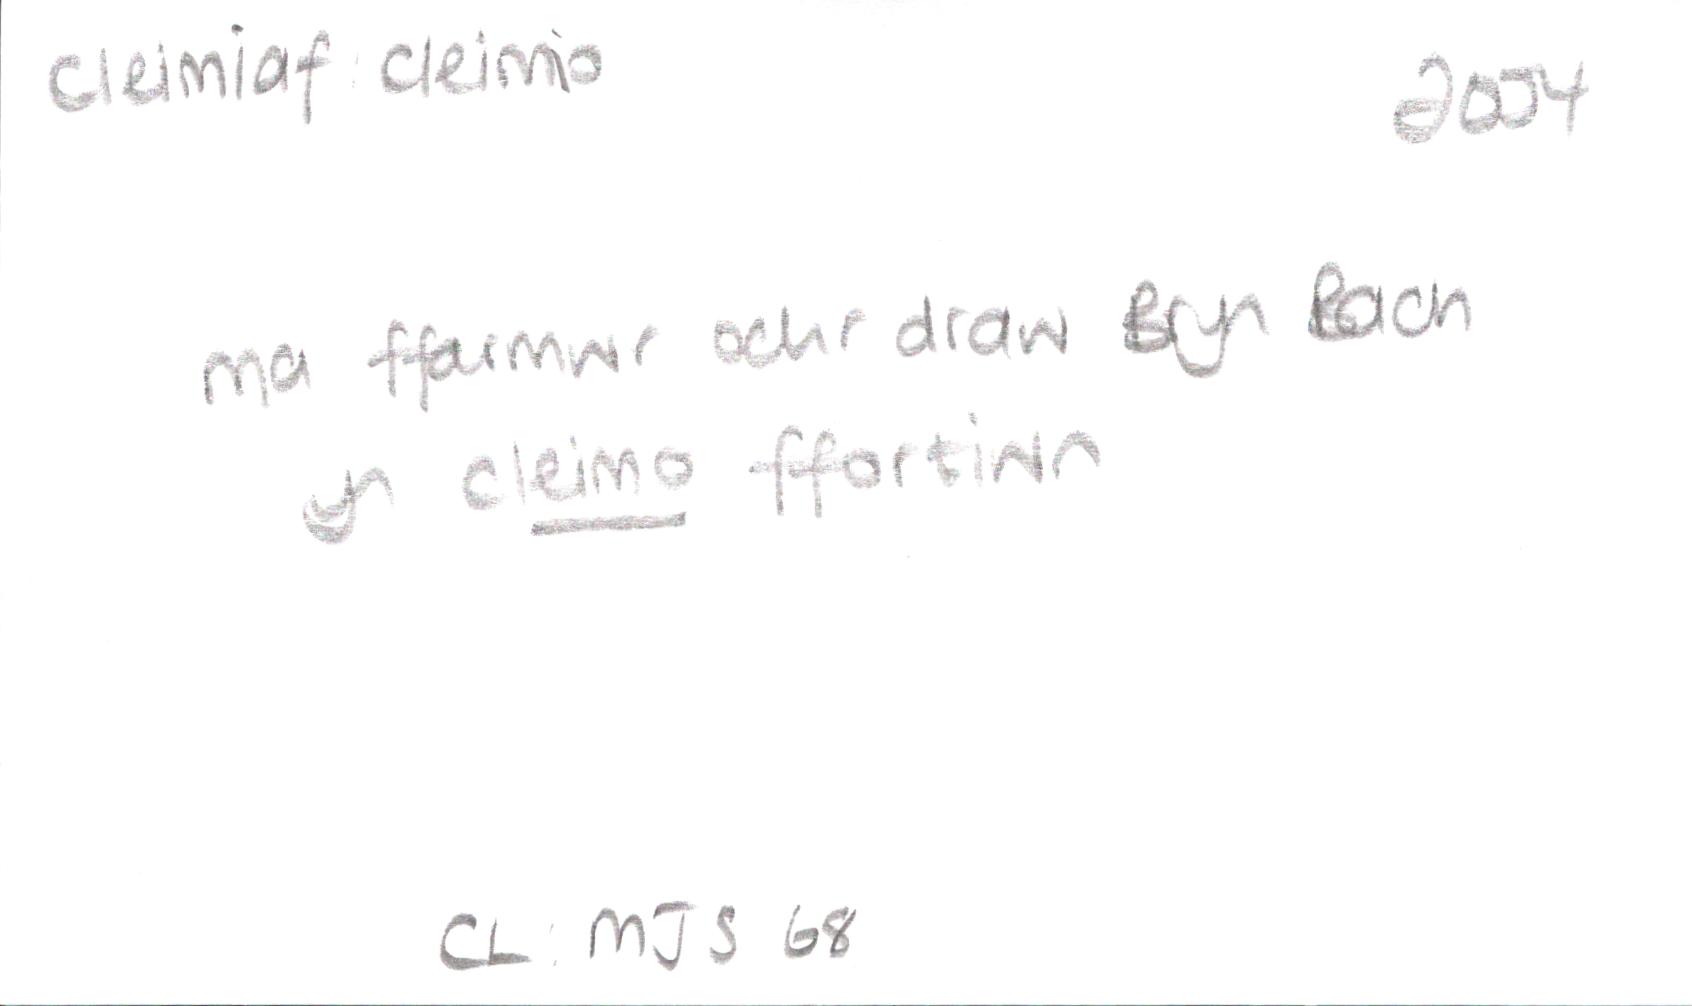 cleimiaf: cleimio
2004
ma ffarmwr ochr draw Bryn Bach
yn cleimo ffortiwn
CL: MJS 68